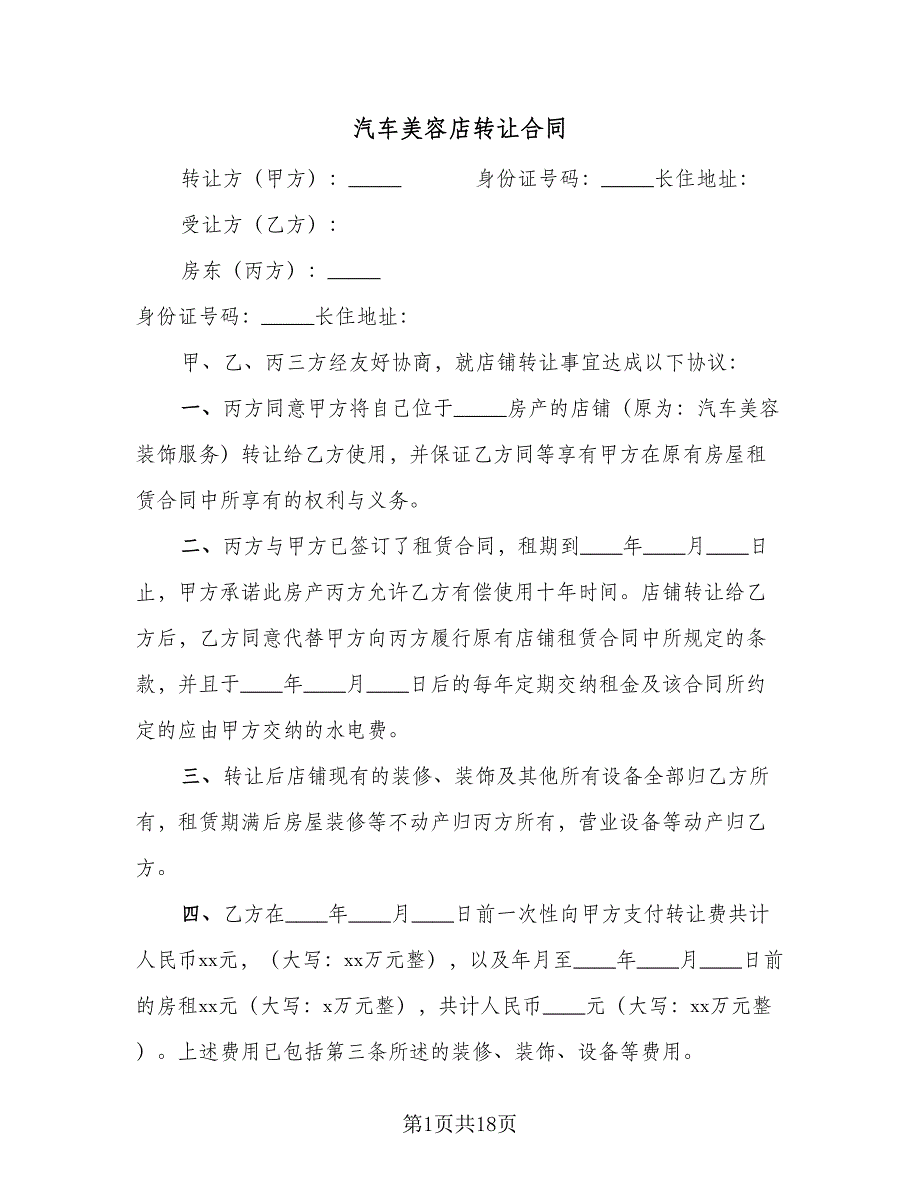 汽车美容店转让合同
转让方（甲方）：_____ 身份证号码：_____长住地址：
受让方（乙方）：
房东（丙方）：_____
身份证号码：_____长住地址：
甲、乙、丙三方经友好协商，就店铺转让事宜达成以下协议：
一、丙方同意甲方将自己位于_____房产的店铺（原为：汽车美容
装饰服务）转让给乙方使用，并保证乙方同等享有甲方在原有房屋租
赁合同中所享有的权利与义务。
二、丙方与甲方已签订了租赁合同，租期到____年____月____日
止，甲方承诺此房产丙方允许乙方有偿使用十年时间。店铺转让给乙
方后，乙方同意代替甲方向丙方履行原有店铺租赁合同中所规定的条
款，并且于____年____月____日后的每年定期交纳租金及该合同所约
定的应由甲方交纳的水电费。
三、转让后店铺现有的装修、装饰及其他所有设备全部归乙方所
有，租赁期满后房屋装修等不动产归丙方所有，营业设备等动产归乙
方。
四、乙方在____年____月____日前一次性向甲方支付转让费共计
人民币xx元，（大写：xx万元整），以及年月至____年____月____日前
的房租xx元（大写：x万元整），共计人民币____元（大写：xx万元整
）。上述费用已包括第三条所述的装修、装饰、设备等费用。
第1页共18页